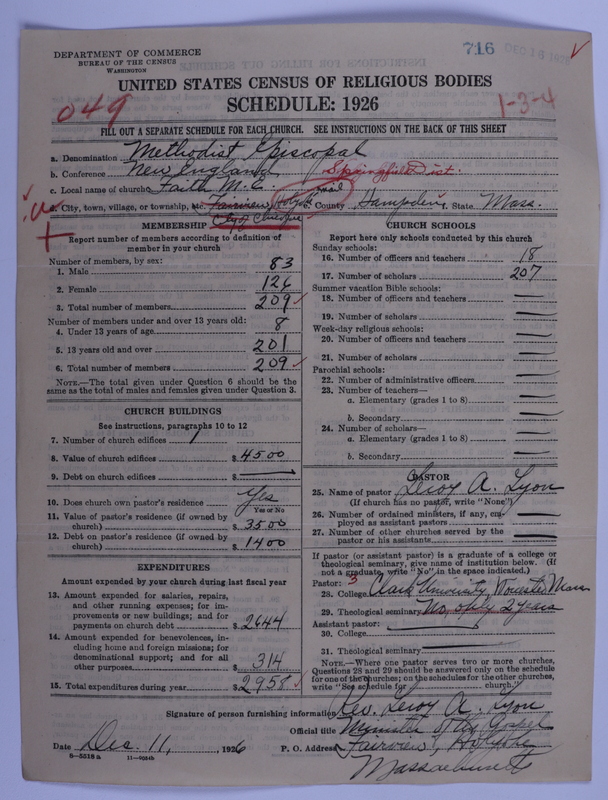 DEPARTMENT OF COMMERCE
BUREAU OF THE CENSUS
WASHINGTON
716
UNITED STATES CENSUS OF RELIGIOUS BODIES
SCHEDULE: 1926
049
1-3-4
FILL OUT A SEPARATE SCHEDULE FOR EACH CHURCH. SEE INSTRUCTIONS ON THE BACK OF THIS SHEET
a. Denomination Methodist Episcopal
b. Conference New England Springfield Dist.
c. Local name of church Faith M. E.
City, town, village, or township, etc. Fairview, County Hampden f. State Mass.
City of Chicopee
MEMBERSHIP
Report number of members according to definition of
member in your church
Number of members, by sex:
1. Male 83
2. Female 126
3. Total number of members 209
Number of members under and over 13 years old:
4. Under 13 years of age 8
5. 13 years old and over 201
6. Total number of members 209
NOTE.—The total given under Question 6 should be the
same as the total of males and females given under Question 3.
CHURCH BUILDINGS
See instructions, paragraphs 10 to 12
7. Number of church edifices 1
8. Value of church edifices $4500
9. Debt on church edifices $
10. Does church own pastor's residence Yes
Yes or No
11. Value of pastor's residence (if owned by
church) $3500
12. Debt on pastor's residence (if owned by
church) $1400
EXPENDITURES
Amount expended by your church during last fiscal year
13. Amount expended for salaries, repairs,
and other running expenses; for im-
provements or new buildings; and for
payments on church debt $2644
14. Amount expended for benevolences, in-
cluding home and foreign missions; for
denominational support; and for all
other purposes $314
15. Total expenditures during year $2958
CHURCH SCHOOLS
Report here only schools conducted by this church
Sunday schools:
16. Number of officers and teachers 18
17. Number of scholars 207
Summer vacation Bible schools:
18. Number of officers and teachers
19. Number of scholars
Week-day religious schools:
20. Number of officers and teachers
21. Number of scholars
Parochial schools:
22. Number of administrative officers
23. Number of teachers—
a. Elementary (grades 1 to 8)
b. Secondary
24. Number of scholars—
a. Elementary (grades 1 to 8)
b. Secondary
PASTOR
25. Name of pastor Leroy A. Lyon
(If church has no pastor, write "None")
26. Number of ordained ministers, if any, em-
ployed as assistant pastors
27. Number of other churches served by the
pastor or his assistants
If pastor (or assistant pastor) is a graduate of a college or
theological seminary, give name of institution below. (If
not a graduate, write "No" in the space indicated.)
Pastor: 3
28. College Clark University, Worcester Mass
29. Theological seminary No, only 2 years
Assistant pastor:
30. College
31. Theological seminary
NOTE.—Where one pastor serves two or more churches,
Questions 28 and 29 should be answered only on the schedule
for one of the churches; on the schedules for the other churches,
write "See schedule for church."
Signature of person furnishing information Rev. Leroy A. Lyon
Official title Minister of the Gospel
Date Dec. 11, 1926 P. O. Address Fairview, Holyoke
8—5518a 11—9034b
Massachusetts